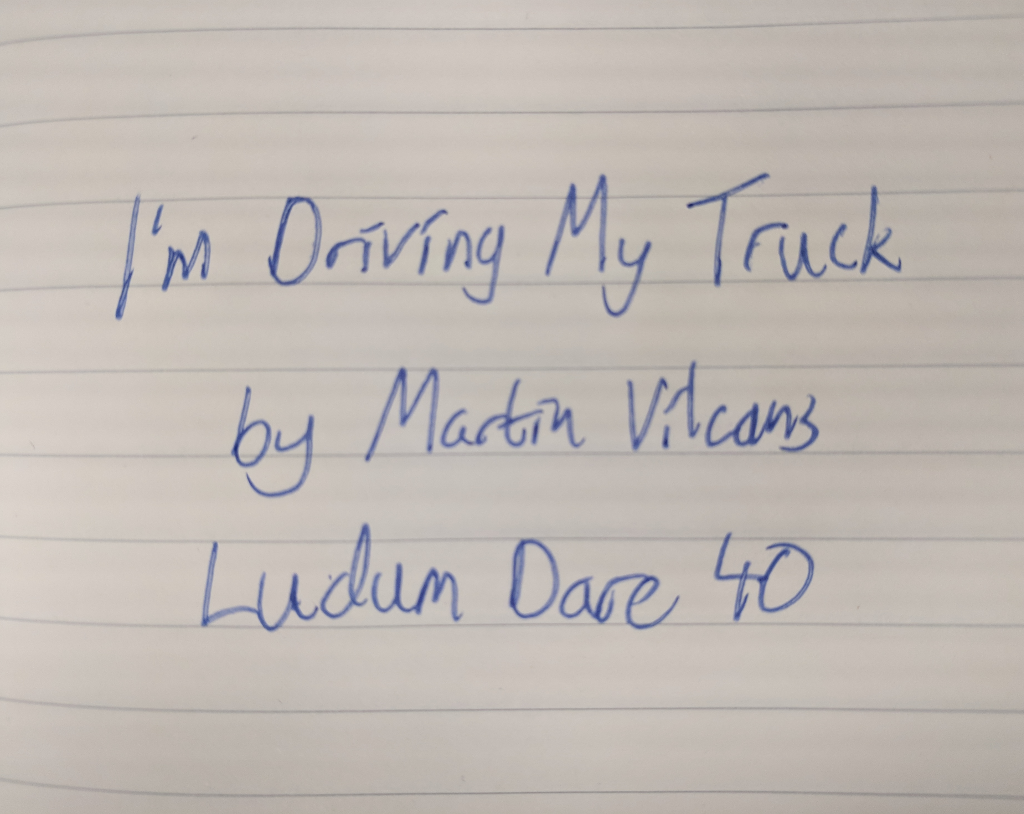 I'm Driving My Truck
by Martin Vilcans
Ludum Dare 40